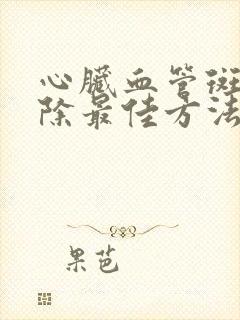 心臟血管斑
除最佳方法
果芭